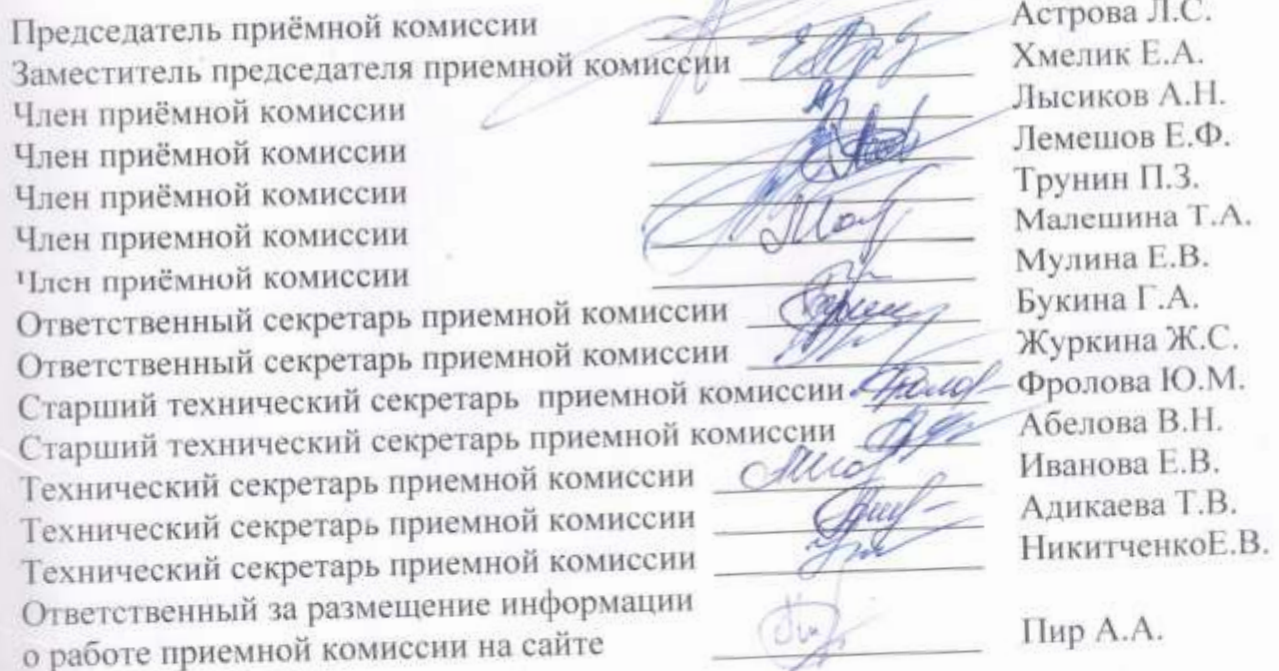 Председатель приёмной комиссии Астрова Л.С.
Заместитель председателя приемной комиссии Хмелик Е.А.
Член приёмной комиссии Лысиков А.Н.
Член приёмной комиссии Лемешов Е.Ф.
Член приёмной комиссии Трунин П.З.
Член приемной комиссии Малешина Т.А.
Член приёмной комиссии Мулина Е.В.
Ответственный секретарь приемной комиссии Букина Г.А.
Ответственный секретарь приемной комиссии Журкина Ж.С.
Старший технический секретарь приемной комиссии Фролова Ю.М.
Старший технический секретарь приемной комиссии Абелова В.Н.
Технический секретарь приемной комиссии Иванова Е.В.
Технический секретарь приемной комиссии Адикаева Т.В.
Технический секретарь приемной комиссии НикитченкоЕ.В.
Ответственный за размещение информации
о работе приемной комиссии на сайте Пир А.А.